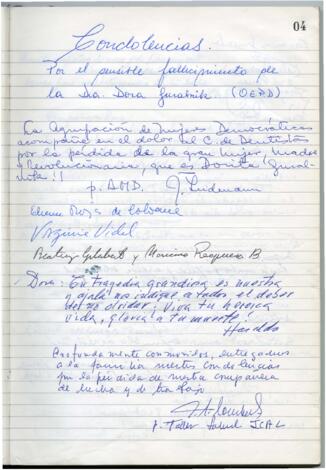 04
Condolencias.
Por el sensible fallecimiento de
la Sra. Dora Guralnik (QEPD)
La Agrupación de Mujeres Democráticas
acompaña en el dolor al C. de Dentistas
por la pérdida de la gran mujer, madre
y Revolucionaria, que es Dorita Gural-
nik!!
p. AMD.
Virginia Vidal
y Mariano Requena B
Dora: Tu tragedia grandiosa es nuestra
y ojalá nos indique a todos el deber
del no olvidar; Viva tu heroica
vida, gloria a tu muerte!
Haroldo
Profundamente conmovidos, entregamos
a la familia nuestras condolencias
por la pérdida de nuestra compañera
de lucha y de trabajo
p. Taller Salud